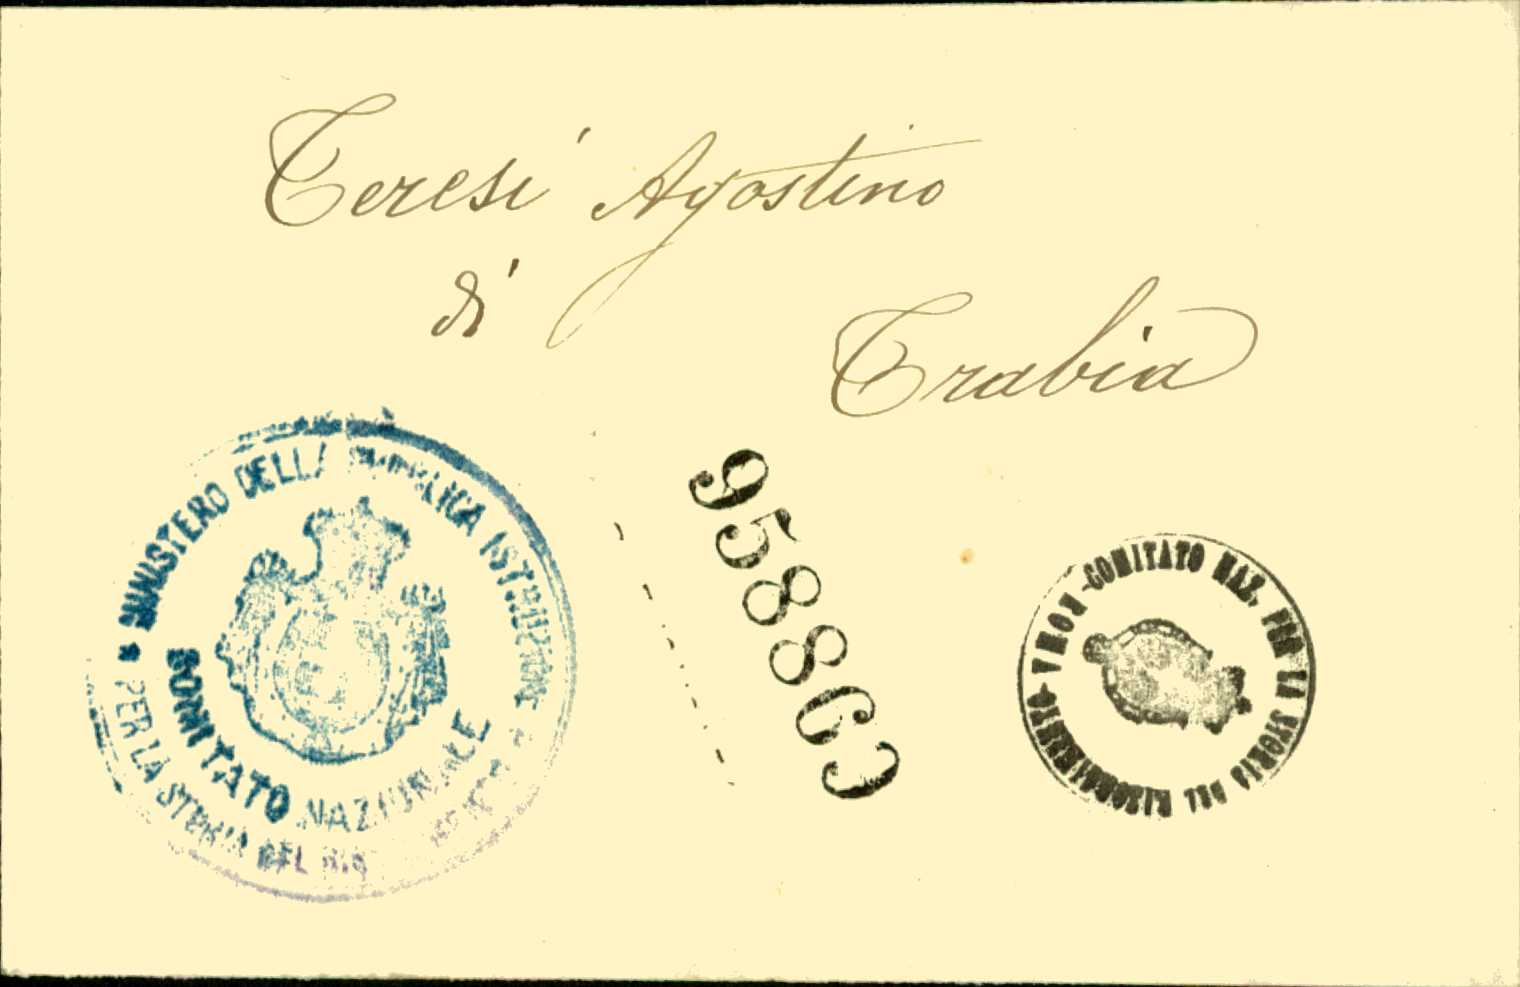 Teresi Agostino
di
Trabia
MINISTERO DELLA PUBBLICA ISTRUZIONE
COMITATO NAZIONALE
PER LA STORIA DEL
95886
COMITATO NAZ. PER LA STORIA DEL RISORGIMENTO - ROMA -